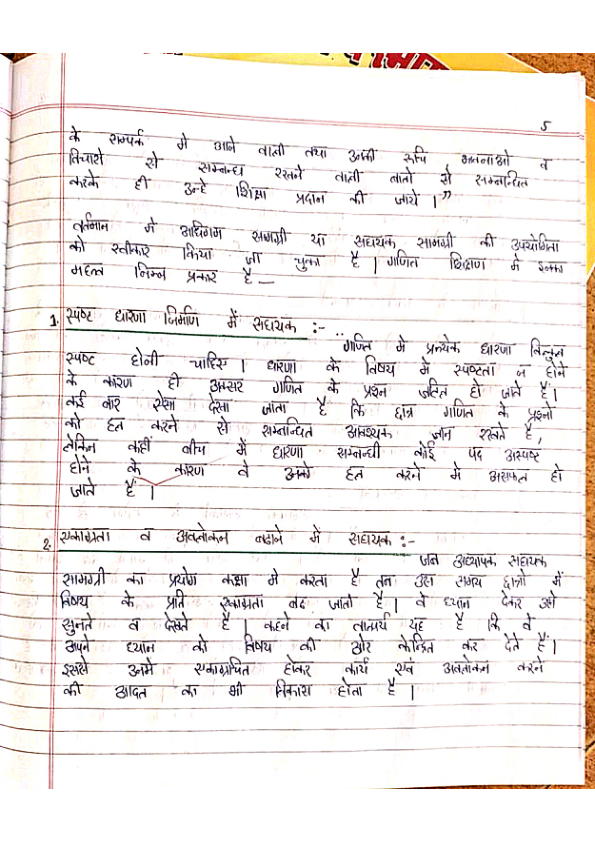 5
के सम्पर्क मे आने वाली तथा उनकी रूचि भावनाओ व
विचारो से सम्बन्ध रखने वाली बातो से सम्बन्धित
करके ही उन्हे शिक्षा प्रदान की जाये ।”
वर्तमान मे अधिगम सामग्री या सहायक सामग्री की उपयोगिता
को स्वीकार किया जा चुका है । गणित शिक्षण मे इसका
महत्व निम्न प्रकार है —
1. स्पष्ट धारणा निर्माण में सहायक :-
गणित मे प्रत्येक धारणा बिल्कुल
स्पष्ट होनी चाहिए । धारणा के विषय मे स्पष्टता न होने
के कारण ही अक्सर गणित के प्रश्न जटिल हो जाते हैं।
कई बार ऐसा देखा जाता है कि छात्र गणित के प्रश्नो
को हल करने से सम्बन्धित आवश्यक ज्ञान रखते है,
लेकिन कहीं बीच में धारणा सम्बन्धी कोई पद अस्पष्ट
होने के कारण वे उनको हल करने मे असफल हो
जाते हैं ।
2. एकाग्रता व अवलोकन बढाने में सहायक :-
जब अध्यापक सहायक
सामग्री का प्रयोग कक्षा मे करता है तब उस समय छात्रो में
विषय के प्रति एकाग्रता बढ जाती है । वे ध्यान देकर उसे
सुनते व देखते है । कहने का तात्पर्य यह है कि वे
अपने ध्यान को विषय की ओर केन्द्रित कर देते हैं।
इससे उनमे एकाग्रचित होकर कार्य एवं अवलोकन करने
की आदत का भी विकास होता है ।